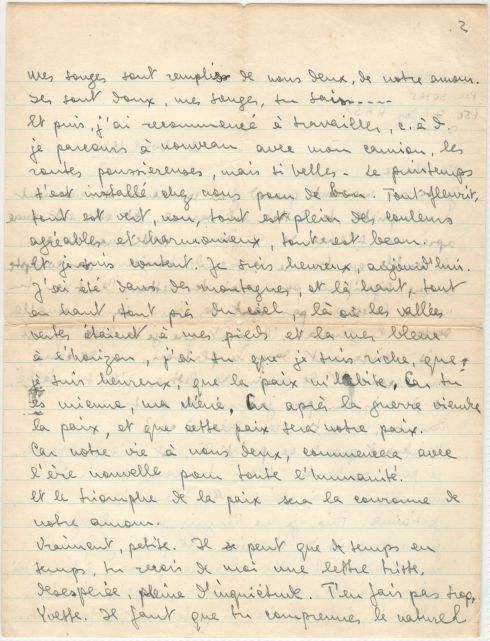 2
Mes songes sont remplis de nous deux, de notre amour.
Ils sont doux, mes songes, tu sais.....
Et puis, j'ai recommencé à travailler, c.à d.
je parcours à nouveau avec mon camion, les
routes poussiereuses, mais si belles. Le printemps
s'est installé chez nous pour de bon. Tout fleurit,
tout est vert, non, tout est plein des couleurs
agréables et harmonieux, tout est beau.
Et je suis content. Je suis heureux, aujourd'hui.
J'ai été dans des montagnes, et là haut, tout
en haut, tout près du ciel, là où les vallées
vertes étaient à mes pieds et la mer bleue
à l'horizon, j'ai su que je suis riche, que
je suis heureux, que la paix m'habite. Car tu
es mienne, ma chérie. Car après la guerre viendra
la paix, et que cette paix sera notre paix.
Car notre vie à nous deux, commencera avec
l'ère nouvelle pour toute l'humanité.
Et le triomphe de la paix sera la couronne de
notre amour.
Vraiment, petite. Il se peut que de temps en
temps, tu reçois de moi une lettre triste,
desesperée, pleine d'inquiétude. T'en fais pas trop,
Yvette. Il faut que tu comprennes le naturel